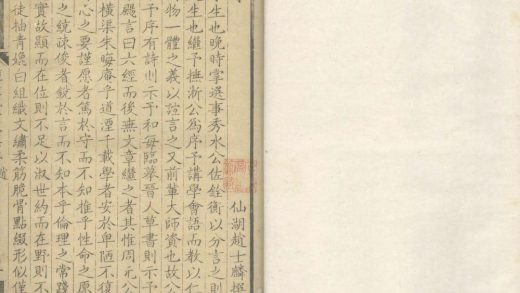 仙湖趙士麟撰
生也晚時掌選事秀水公佐銓衡以分言之則
生也繼予撫浙公爲序予講學會語而教以仁
物一體之義以誼言之又前輩大師資也故公
予序有詩則示予和每臨摹晉人草書則示予
颺言曰六經而後無文章繼之者其惟周元公
横渠朱晦庵乎道湮千載學者安於卑陋不復
心之要謹愿者篤於守而不知推乎性命之原
之統疎俊者銳於言而不知本乎倫理之常
實故顯而在位則不足以淑世約而在野則不
徒柚青媲白組織文繡柔筋脆骨點綴形似僅